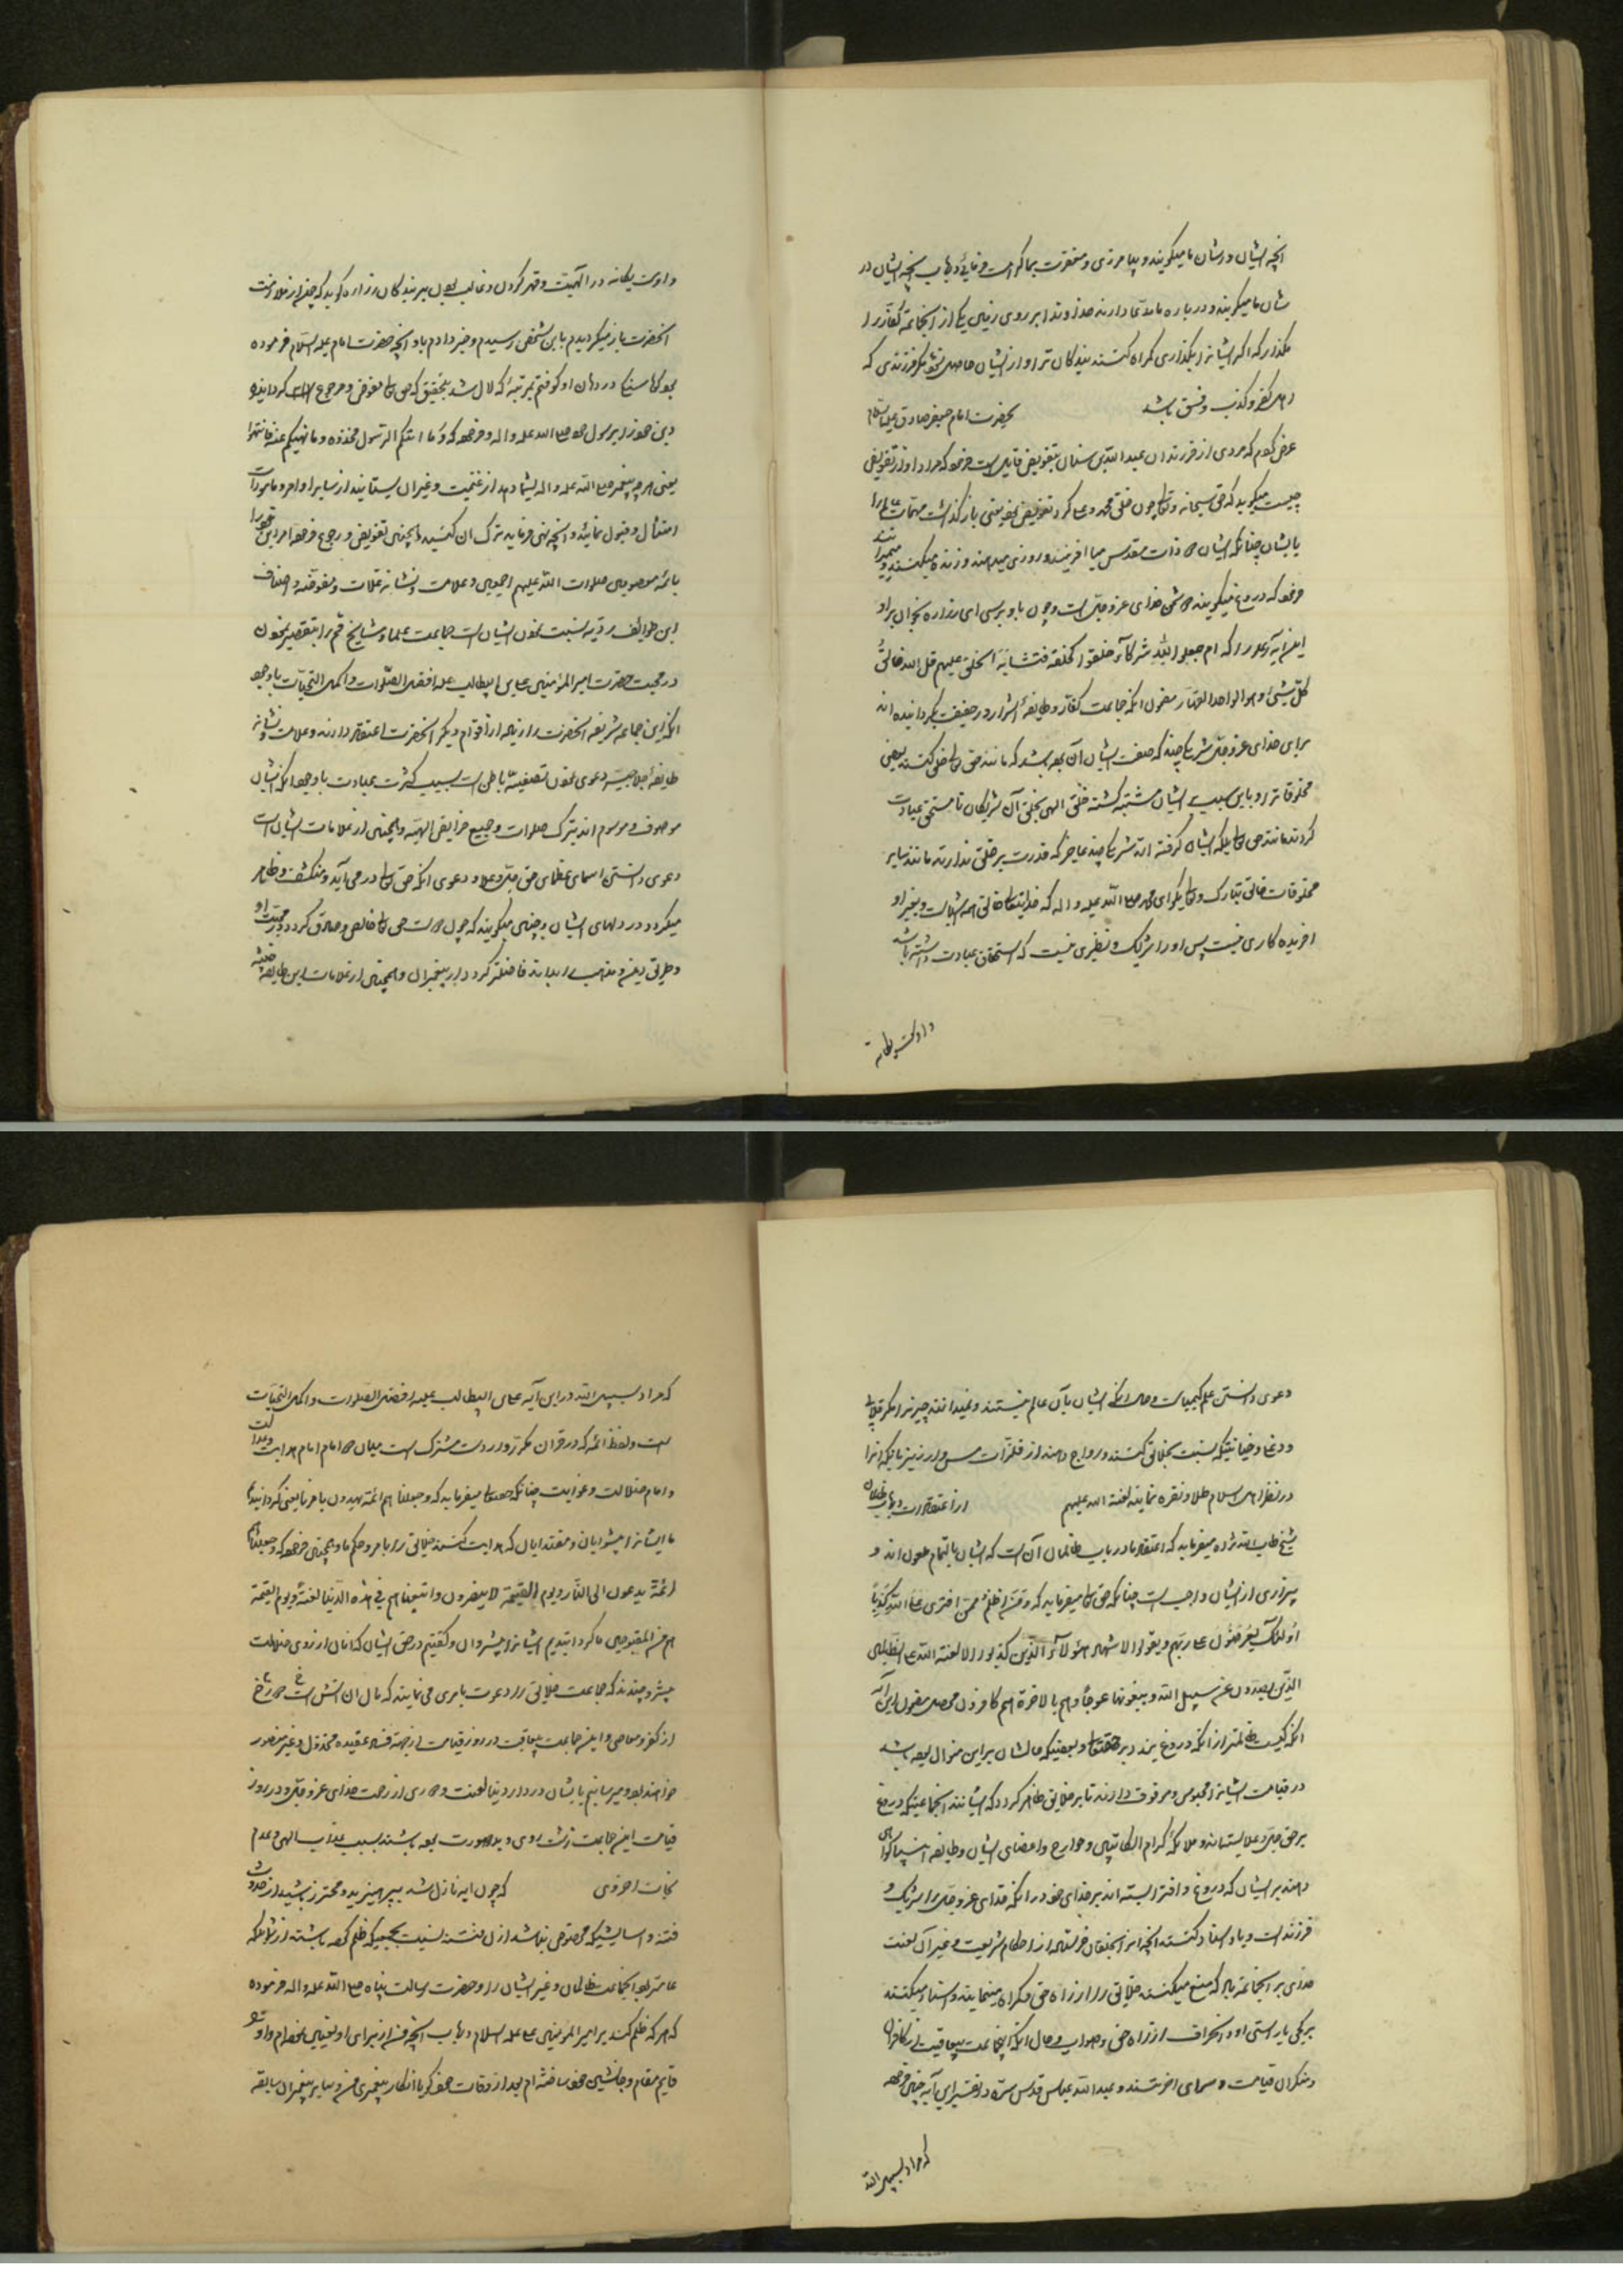 آنچه ایشان در شان ما میکویند و بیامرزی و مغفرت بما کرامت فرمائی در باب آنچه ایشان در
شان ما میکویند و درباره ما مدعا دارند خداوندا بر روی زمین یکی از آنجماعة کفار را
مکذار که اکر ایشانرا بکذاری کمراه کنند بندکان ترا و از ایشان حاصل نشود مکر فرزندی که
اهل کفر و کذب و فسق باشد بحضرت امام جعفر صادق علیه السلام
عرض کردم که مردی از فرزندان عبدالله بن سنان بتفویض قایل است فرمود که مراد او از تفویض
چیست میکوید که حق سبحانه و تعالی چون خلق محمد و علی کرد تفویض نمود یعنی باز کذاشت مهمات عالم را
بایشان چنانکه ایشان ذات مقدس میافرینند و روزی میدهند و زنده میکنند و میمیرانند
فرمود که دروغ میکویند دشمن خدای عز و جل است و چون باو برسی ای زراره بخوان بر او
این آیه که در که ام جعلوا لله شرکآء خلقوا کخلقه فتشابه الخلق علیهم قل الله خالق
کل شیء و هو الواحد القهار مضمون آنکه جماعت کفار و طایفهٔ اشرار در حقیقت بکردانیده اند
برای خدای عز و جل شریکی چند که صفت ایشان آن بود باشد که مانند حق تعالی خلق کنند بعضی
مخلوقاترا و باین سبب ایشان مشتبه کشته خلق الهی بخلق آن شریکان تا مستحق عبادت
کردند مانند حق تعالی بلکه ایشان کرفته اند شریکی چند عاجز که قدرت بر خلق ندارند مانند سایر
مخلوقات خالق تبارک و تعالی بکو ای محمد صلی الله علیه و اله که خدایتعالی خالق همه اشیاست و بغیر او
افریده کاری نیست پس او را شریک و نظیری نیست که استحقاق عبادت داشته باشد
و اوست یکانه
و اوست یکانه در الهیت و قهر کردن و غالب بودن بر بندکان زراره کوید که چون از ملازمت
آنحضرت باز میکردیدم باین شخص رسیدم و خبر دادم باو آنچه حضرت امام علیه السلام فرموده
بود کویا سنکی در دهان او کوفتم بمرتبهٔ که لال شد بتحقیق که حق تعالی تفویض و مرجوع کردانیده
دین خود را برسول خود صلی الله علیه و اله و فرمود که و ما اتیکم الرسول فخذوه و ما نهیکم عنه فانتهوا
یعنی هر چه پیغمبر صلی الله علیه و اله بشما دهد از غنیمت و غیر آن بستانید از سایر اوامر و مامورات
امتثال و قبول نمائید و آنچه نهی فرماید ترک آن کنید همچنین تفویض و رجوع فرموده امر دین خود را
بائمه معصومین صلوات الله علیهم اجمعین و علامت و نشانه غلات و مفوضه و اصناف
این طوایف ردیه نسبت نمودن ایشان است جماعت علما و مشایخ قم را بتقصیر نمودن
در محبت حضرت امیر المؤمنین علی بن ابیطالب علیه افضل الصلوات و اکمل التحیات باوجود
آنکه این جماعه شریفه آنحضرت را زیاده از اقوام دیکر آنحضرت اعتقاد دارند و علامت و نشانه
طایفه حلاجیه دعوی نمودن تصفیهٔ باطن است بسبب کثرت عبادت باوجود آنکه ایشان
موصوف و موسوم اند بترک صلوات و جمیع فرایض الهیه و همچنین از علامات ایشان است
دعوی دانستن اسمای عظمای حق جل و علا و دعوی آنکه حق تعالی در می آید و منکشف و ظاهر
میکردد در دلهای ایشان و چنین میکویند که چون دوست حق تعالی خالص و صادق کردد در محبت او
و طریق دین و مذهب را بداند فاضلتر کردد از پیغمبران و همچنین از علامات این طایفه خبیثه
دعوی دانستن علم کیمیاست و حال آنکه ایشان بآن عالم نیستند و نمیدانند چیزیرا مکر قلابی
و دغا و خیانتیکه نسبت بخلایق کنند و رواج دهند از فلزات مس و ارزیز تا بیکه آنرا
در نظر اهل اسلام طلا و نقره نمایند لعنة الله علیهم از اعتقادات در باب ظالمان
شیخ طاب الله ثراه میفرماید که اعتقاد ما در باب ظالمان آن است که ایشان بالتمام ملعون اند و
بیزاری از ایشان واجب است چنانکه حق تعالی میفرماید که و من اظلم ممن افتری علی الله کذبا
اولئک یعرضون علی ربهم و یقول الاشهاد هؤلآء الذین کذبوا الا لعنة الله علی الظالمین
الذین یصدون عن سبیل الله و یبغونها عوجا و هم بالاخرة هم کافرون محصل مضمون این آیه
آنکه کیست ظالمتر از آنکه دروغ بندد بر حقتعالی و بعضیکه حالشان بر این منوال بوده باشد
در قیامت ایشانرا محبوس و موقوف دارند تا بر خلایق ظاهر کردد که ایشانند آنجماعتیکه دروغ
بر حق جل و علا بسته اند و ملایکهٔ کرام الکاتبین و جوارح و اعضای ایشان و طایفه انبیا کواهی
دهند بر ایشان که دروغ و افترا بسته اند بر خدای خود در آنکه خدای عز و جل را شریک و
فرزند است و باو اسناد کنند آنچه از آنجنان فرستاده از احکام شریعت و غیر آن لعنت
خدای بر آنجماعة باد که منع میکنند خلایق را از راه حق و کمراه مینمایند و اسناد میکنند
بر کجی بار استی او و انحراف از راه حق و صواب و حال آنکه اینجماعت بیعاقبت از کافران
و منکران قیامت و سرای آخرتند و عبدالله عباس قدس سره در تفسیر این آیه چنین فرموده
که مراد بسبیل الله
که مراد بسبیل الله در این آیه علی بن ابیطالب علیه افضل الصلوات و اکمل التحیات
است و لفظ ائمه که در قرآن مکرر وارد است مشترک است میان دو امام امام هدایت و عدالت
و امام ضلالت و غوایت چنانکه حقتعالی میفرماید که و جعلناهم ائمة یهدون بامرنا یعنی کردانیدیم
ما ایشانرا پیشوایان و مقتدایان که هدایت کنند خلایق را بامر و حکم ما و همچنین فرموده که و جعلناهم
ائمة یدعون الی النار و یوم القیمة لا ینصرون و اتبعناهم فی هذه الدنیا لعنة و یوم القیمة
هم من المقبوحین ما کردانیدیم ایشانرا پیشروان و کفتیم در حق ایشان که آنان از روی ضلالت
پیشروچندند که جماعت خلایق را دعوت بامری می نمایند که مآل آن آتش است
از کفر و معاصی و این جماعت بیعاقبت در روز قیامت از جهة فساد عقیده مخذول و غیر منصور
خواهند بود و میرسانیم بایشان در دار دنیا لعنت و دوری از رحمت خدای عز و جل و در روز
قیامت این جماعت زشت روی و بد صورت بوده باشند بسبب عذاب الهی و عدم
نجات اخروی که چون آیه نازل شد بپرهیزید و محترز باشید از حدوث
فتنه و آسایشیکه مخصوص نباشد از ل فتنه نسبت بجمعیکه ظلم کرده باشند از شما بلکه
عام بود آنجماعت ظالمان و غیر ایشان را و حضرت رسالت پناه صلی الله علیه و اله فرموده
که هر که ظلم کند بر امیر المؤمنین علی علیه السلام در باب آنچه من از برای او تعیین نموده ام و او را
قایم مقام و جانشین خود ساخته ام بعد از وفات خود کویا انکار پیغمبری من و سایر پیغمبران سابقه